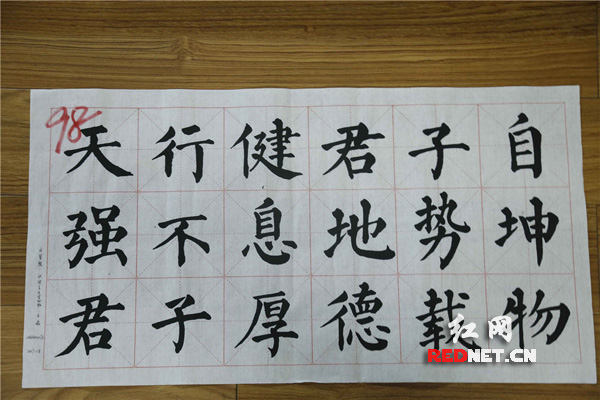 98
天行健君子自
强不息地势坤
君子厚德載物
红网
REDNET.CN